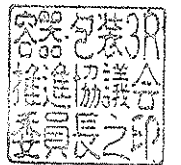 容器・包装3R
推進協議会
委員長之印